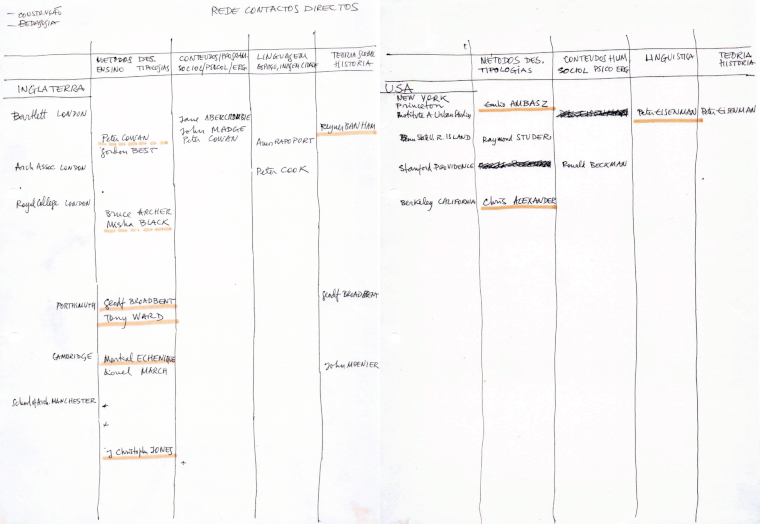 REDE CONTACTOS DIRECTOS
METODOS DES.
ENSINO TIPOLOGIAS
CONTEUDOS/PROGRAM
SOCIOL/PSICOL/ERG.
LINGUAGEM
TEORIA SOBRE
HISTORIA
INGLATERRA
Bartlett LONDON
Peter COWAN
Gordon BEST
Jane ABERCROMBIE
John MADGE
Peter COWAN
Amos RAPOPORT
Reyner BANHAM
Arch Assoc LONDON
Peter COOK
Royal College LONDON
Bruce ARCHER
Misha BLACK
PORTHSMUTH
Geoff BROADBENT
Tony WARD
Geoff BROADBENT
CAMBRIDGE
Martial ECHENIQUE
Lionel MARCH
John MEENIER
School of Arch. MANCHESTER
+
+
J Christoph JONES
+
METODOS DES.
TIPOLOGIAS
CONTEUDOS HUM
SOCIOL PSICO ERG
LINGUISTICA
TEORIA
HISTORIA
USA
NEW YORK
Princeton
Institute A. Urban
Emilio AMBASZ
Peter EISENMAN
Peter EISENMAN
R. ISLAND
Raymond STUDER
Stanford PROVIDENCE
Ronald BECKMAN
Berkeley CALIFORNIA
Chris ALEXANDER